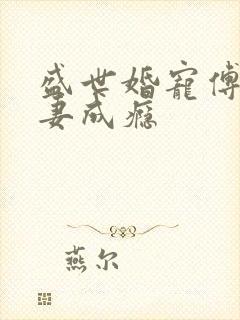 盛世婚宠傅
妻成瘾
燕尔